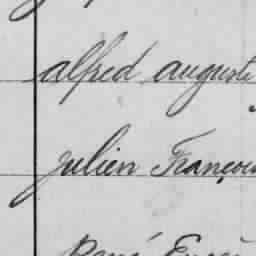 alfred auguste
Julien François
René Eugè